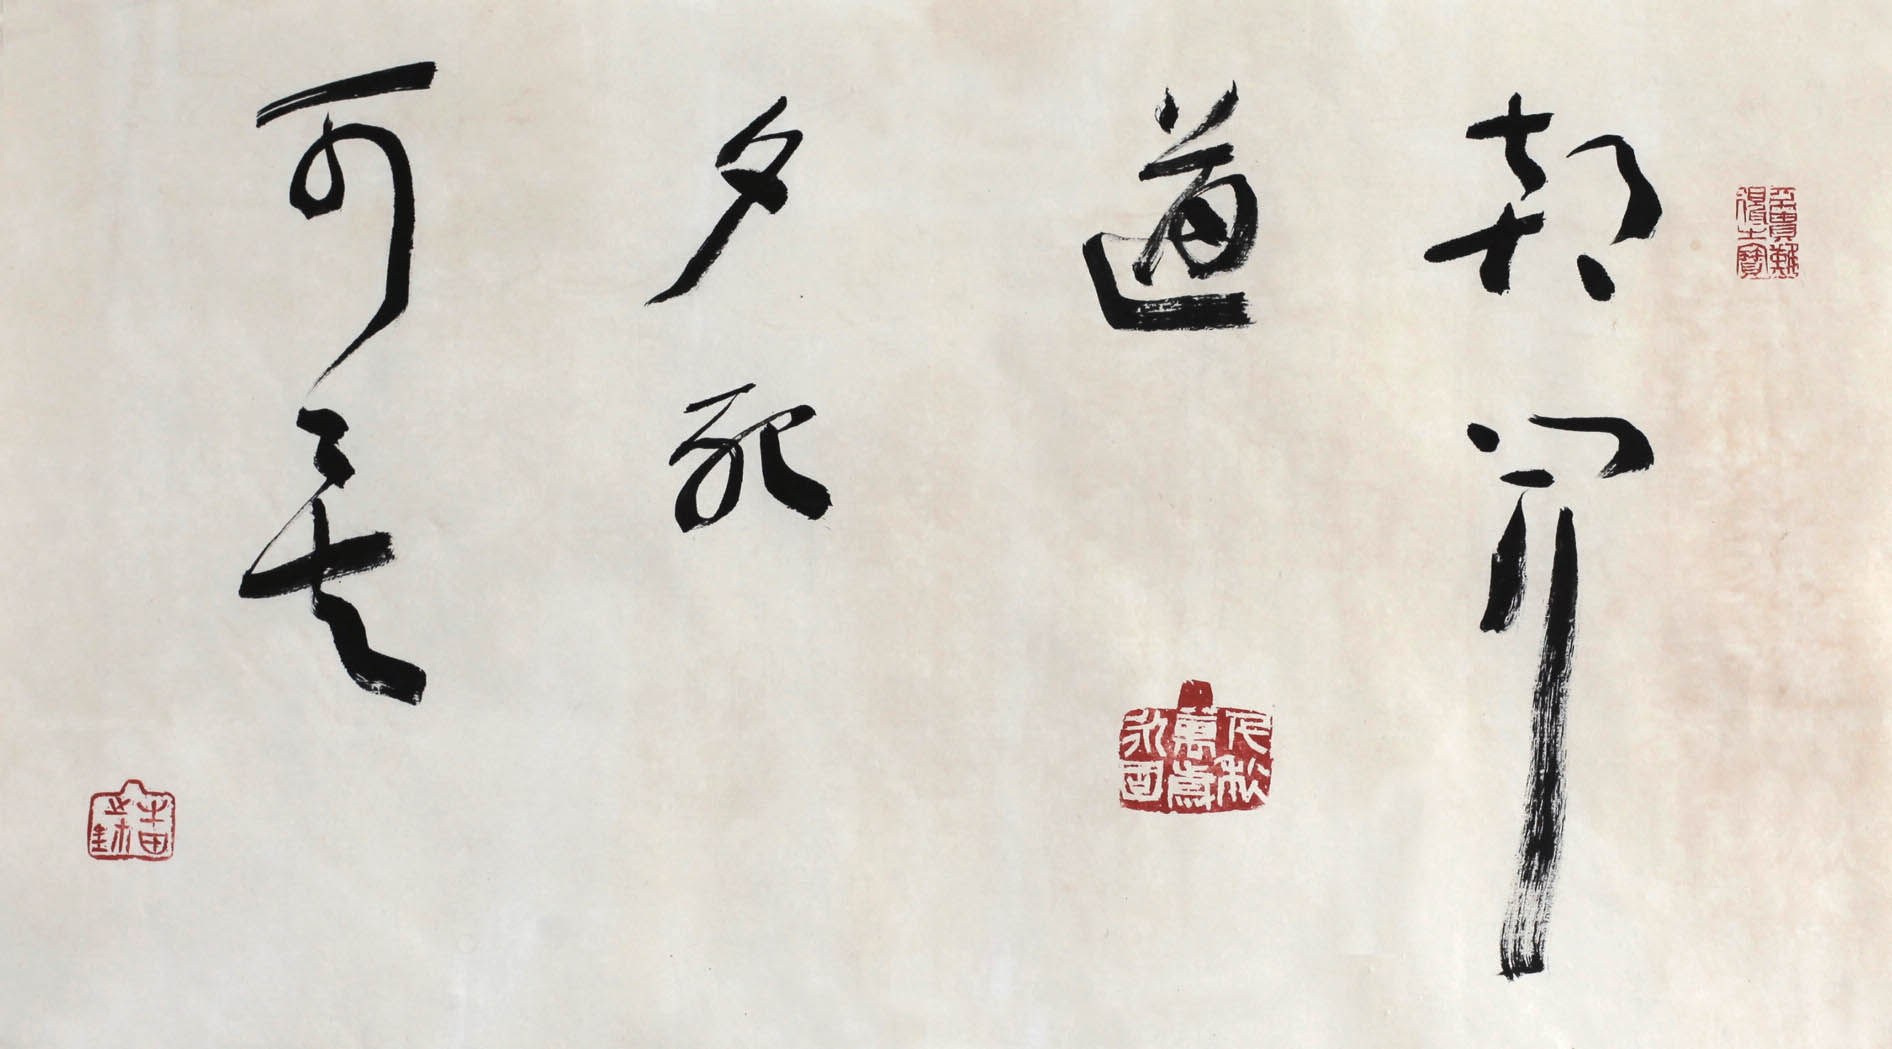 朝聞
道
夕死
可矣